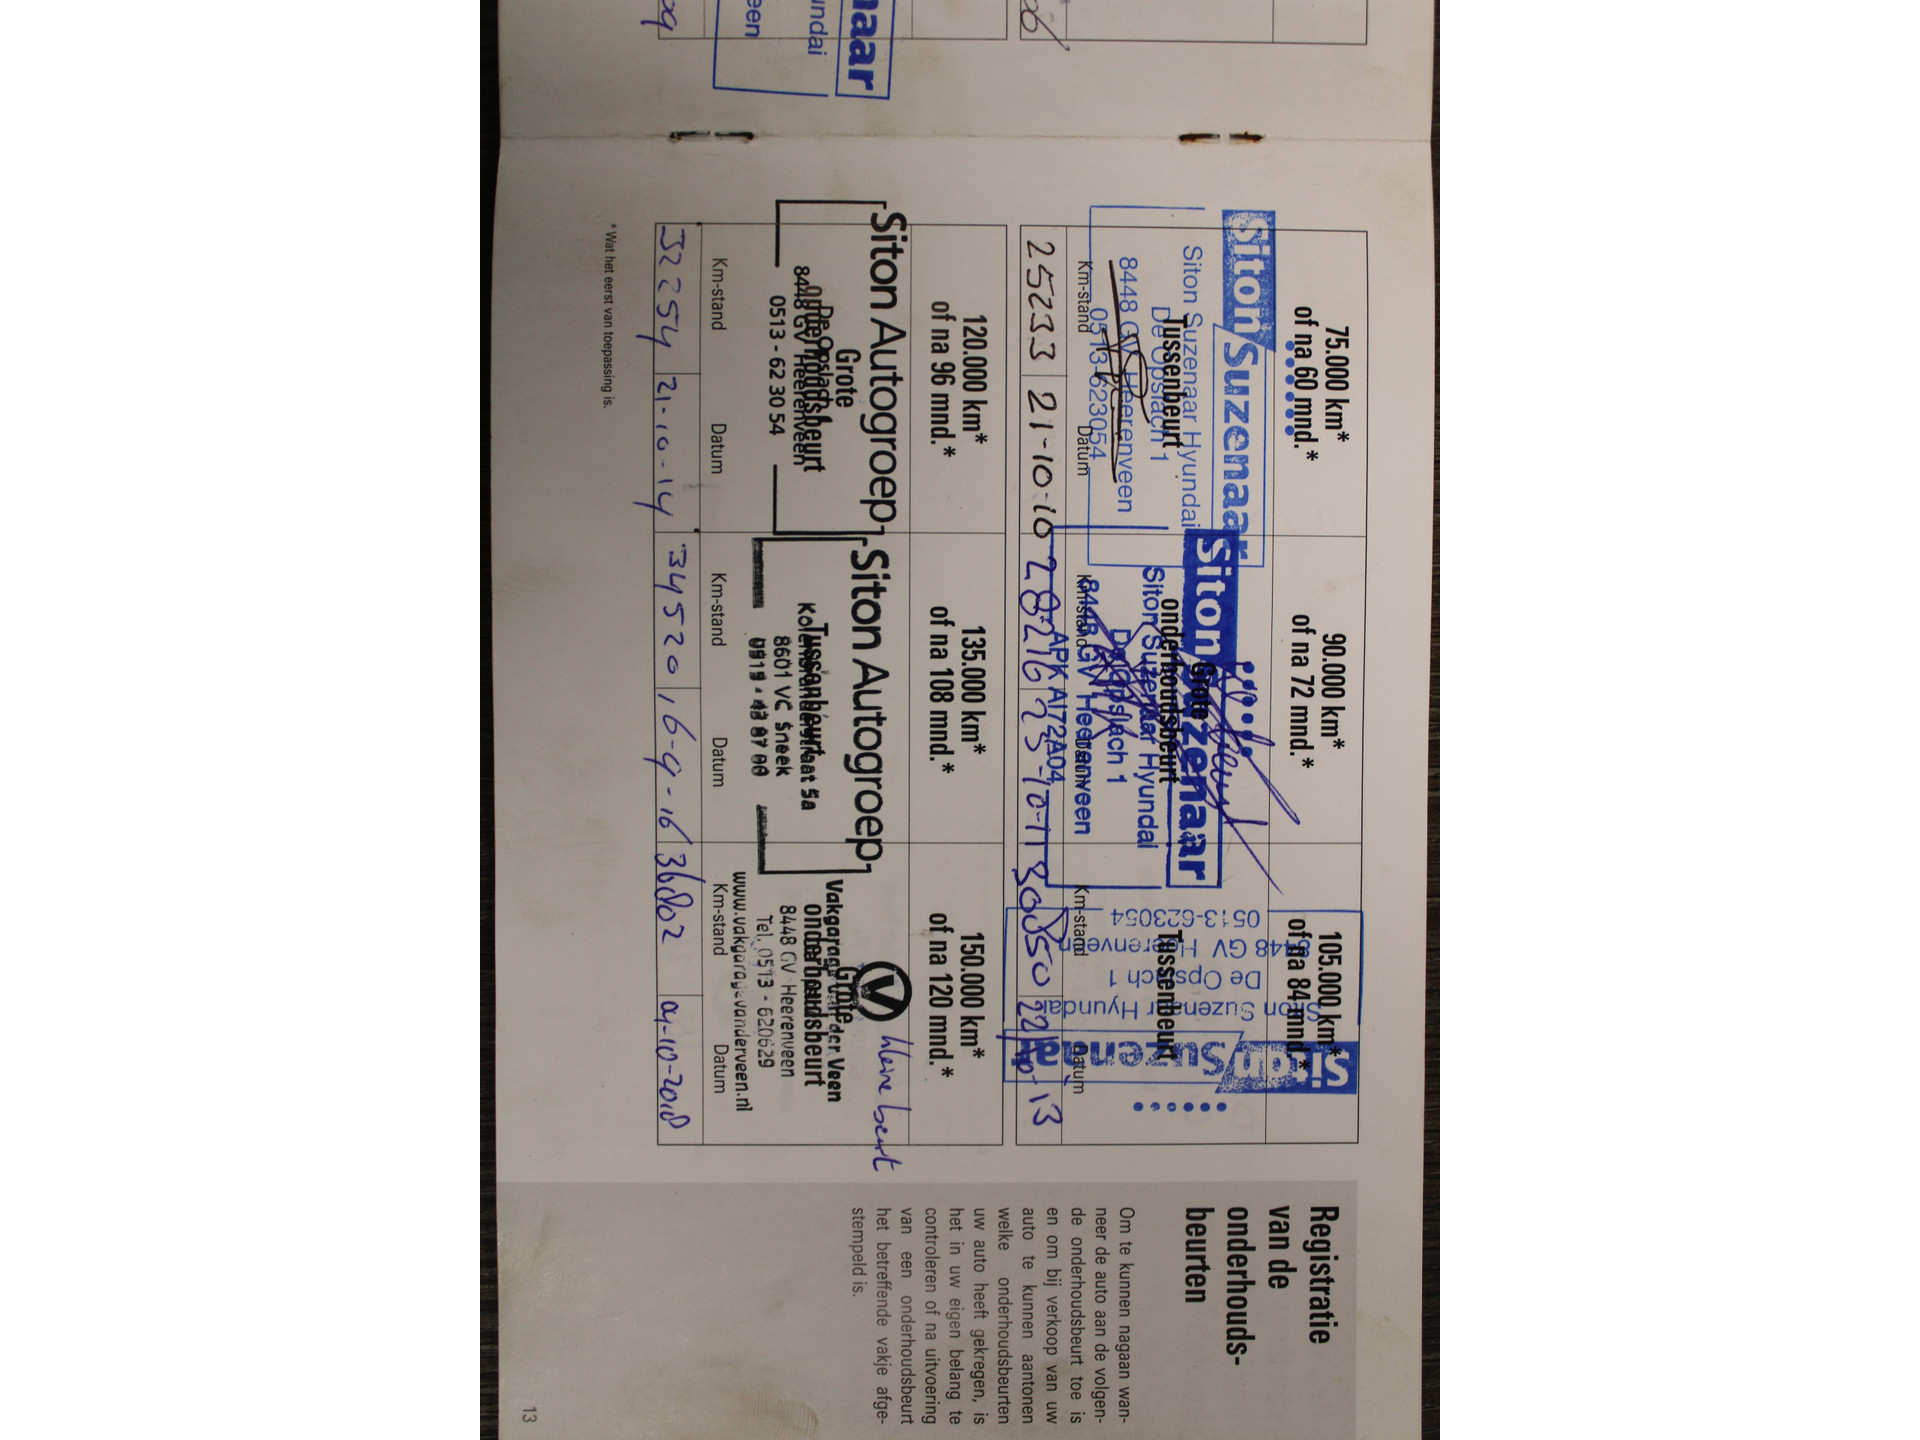 75.000 km*
of na 60 mnd.*
Siton Suzenaar
Siton Suzenaar Hyundai
Tussenbeurt
De Opslach 1
8448 GV Heerenveen
0513-623054
Km-stand
Datum
25233
21-10-10
90.000 km*
of na 72 mnd.*
Siton Suzenaar
Grote
onderhoudsbeurt
Siton Suzenaar Hyundai
De Opslach 1
8448 GV Heerenveen
APK AI72A04
Km-stand
Datum
28216
23-10-11
105.000 km*
of na 84 mnd.*
Siton Suzenaar
Siton Suzenaar Hyundai
De Opslach 1
8448 GV Heerenveen
0513-623054
Tussenbeurt
Km-stand
Datum
30850
13
120.000 km*
of na 96 mnd.*
Siton Autogroep
Grote
onderhoudsbeurt
De Opslach
8448 GV Heerenveen
0513 - 62 30 54
Km-stand
Datum
32254
21-10-14
135.000 km*
of na 108 mnd.*
Siton Autogroep
Tussenbeurt
5a
8601 VC Sneek
Km-stand
Datum
34520
16-9-16
150.000 km*
of na 120 mnd.*
kleine beurt
V
Grote
onderhoudsbeurt
Vakgarage van der Veen
8448 GV Heerenveen
Tel. 0513 - 620629
www.vakgaragevanderveen.nl
Km-stand
Datum
-10-2018
* Wat het eerst van toepassing is.
Registratie
van de
onderhouds-
beurten
Om te kunnen nagaan wan-
neer de auto aan de volgen-
de onderhoudsbeurt toe is
en om bij verkoop van uw
auto te kunnen aantonen
welke onderhoudsbeurten
uw auto heeft gekregen, is
het in uw eigen belang te
controleren of na uitvoering
van een onderhoudsbeurt
het betreffende vakje afge-
stempeld is.
13